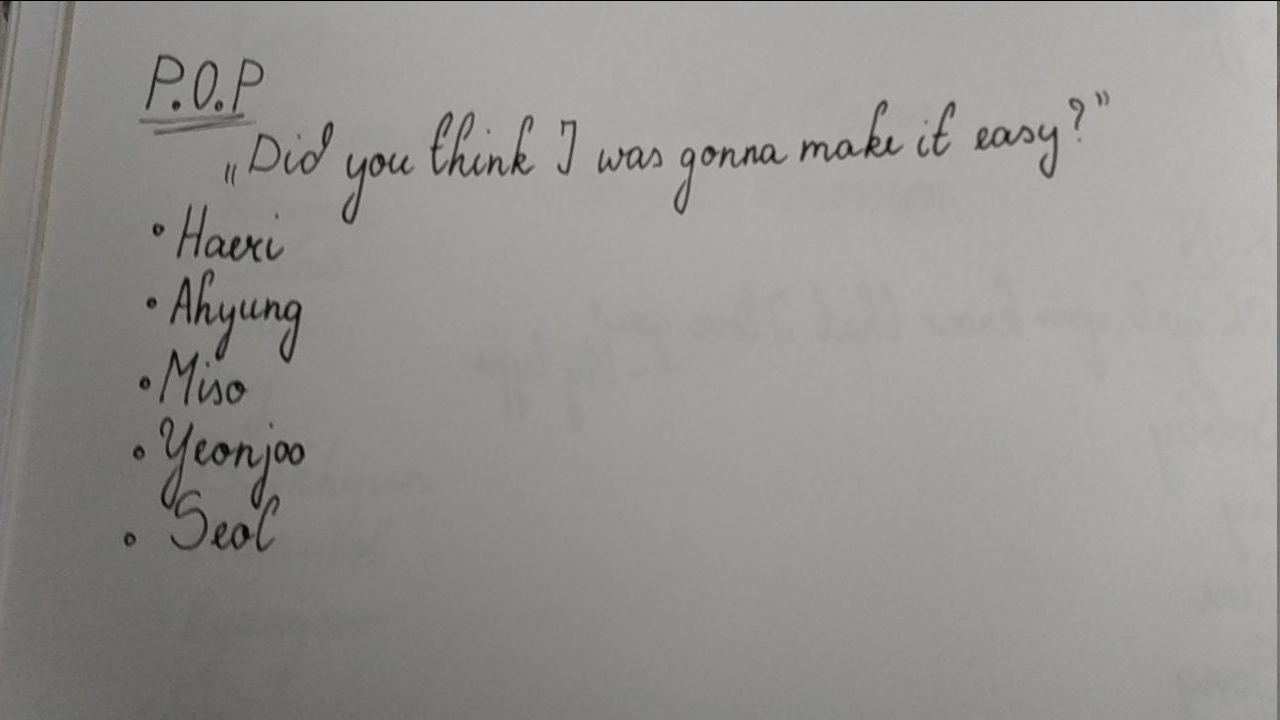 P.O.P
„Did you think I was gonna make it easy?”
• Haeri
• Ahyung
• Miso
• Yeonjoo
• Seol